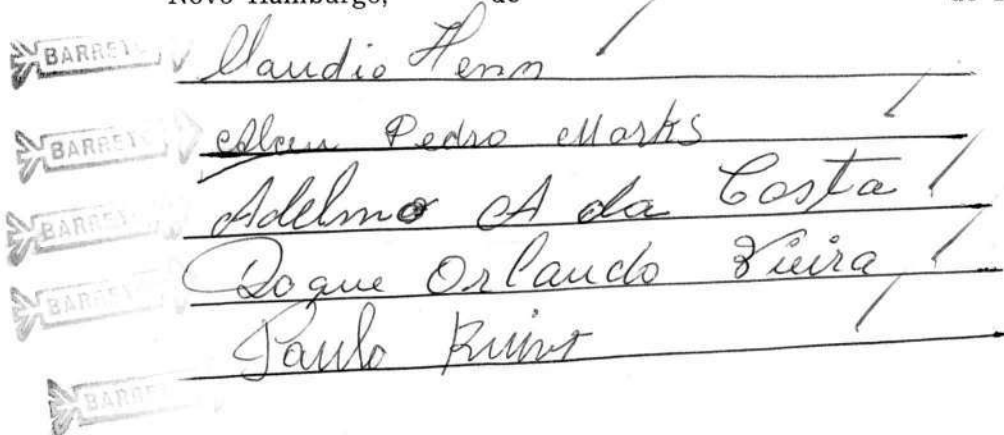 Novo Hamburgo, de
BARRETO Claudio Henn
BARRETO Pedro
BARRETO Adelmo A da Costa
BARRETO Roque Orlando Vieira
Paulo
BARRETO